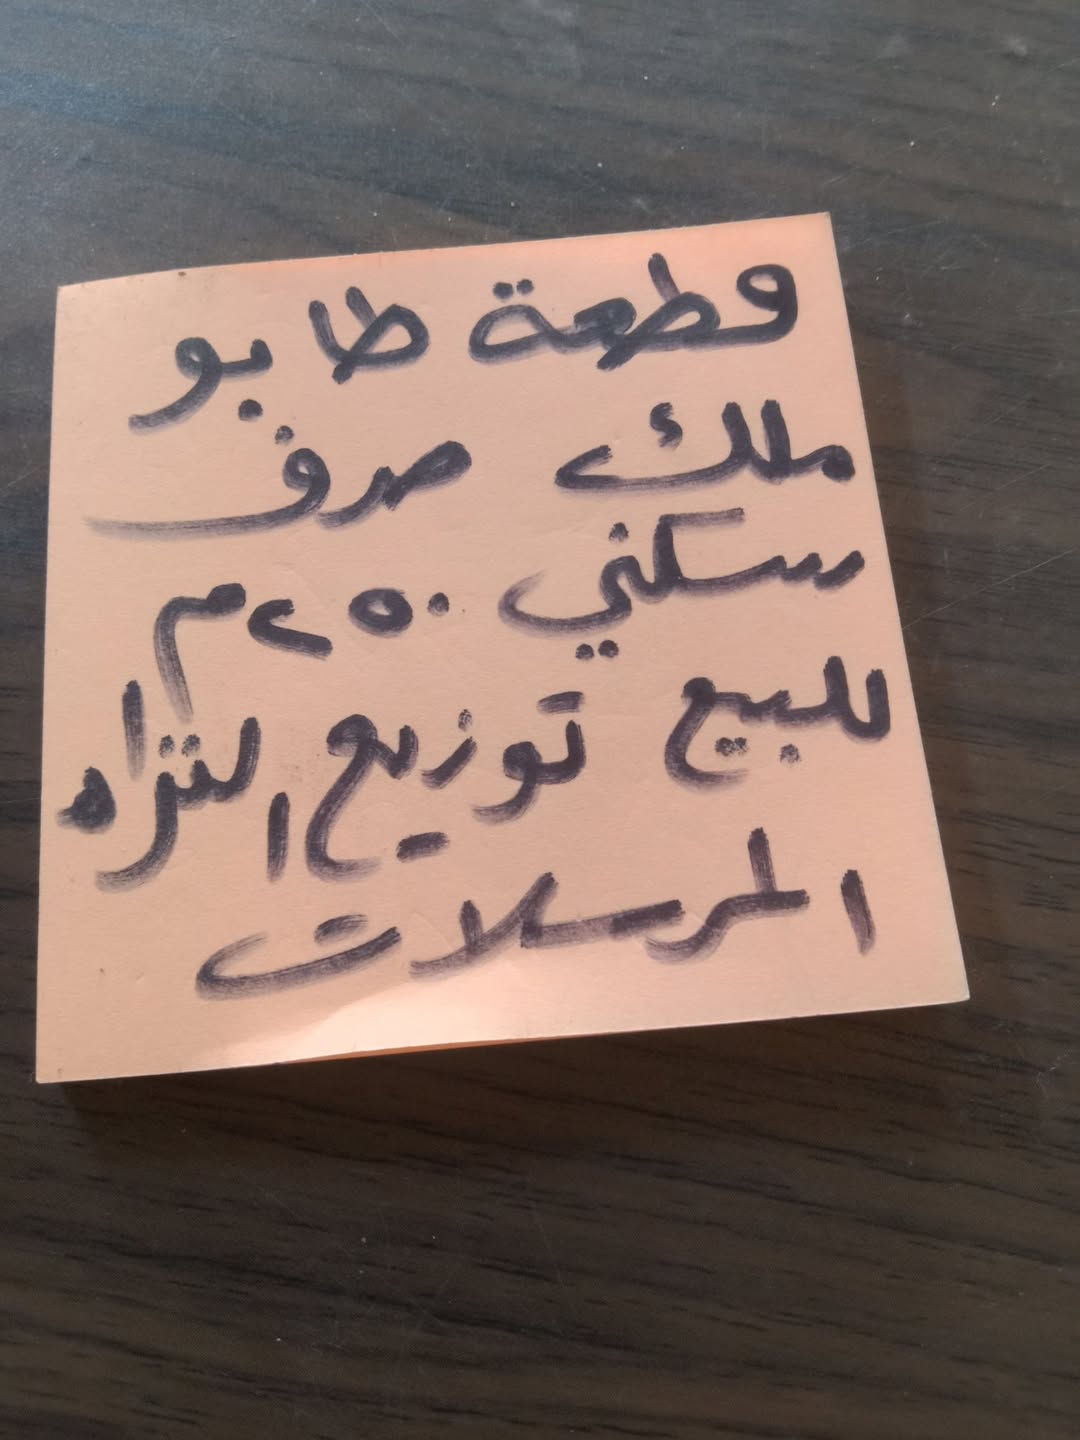 قطعة طابو
ملك صرف
سكني ٢٥٠م
للبيع توزيع
المرسلات